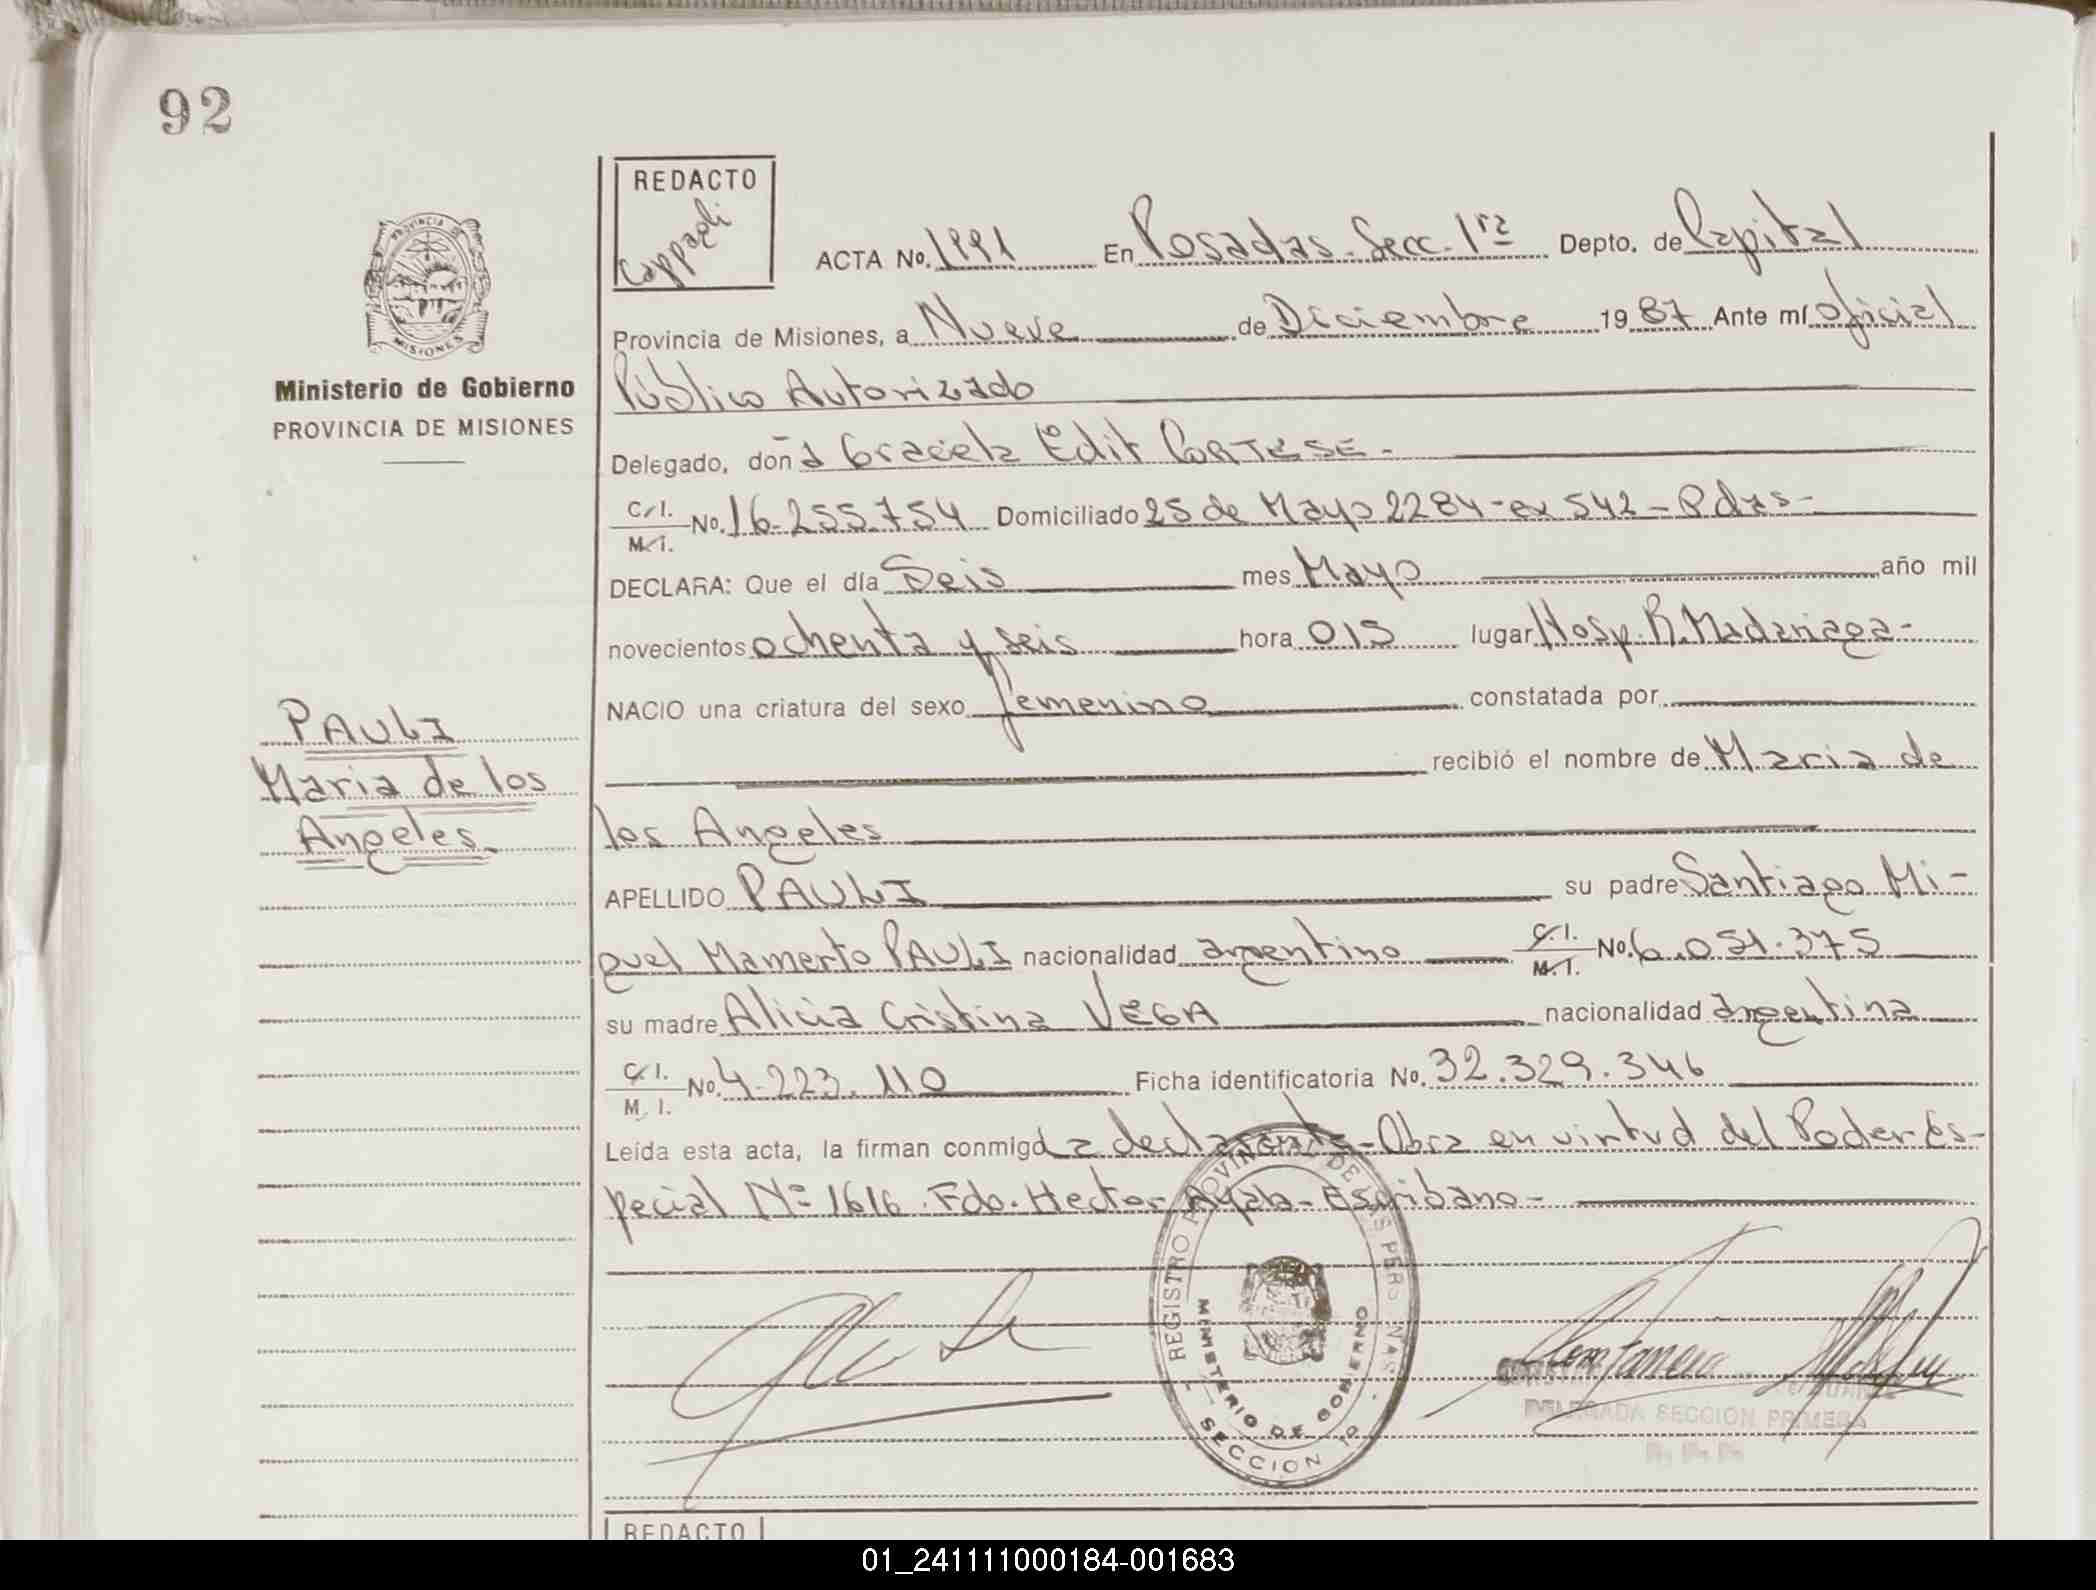 92
REDACTO
Cappagli
PROVINCIA DE
MISIONES
Ministerio de Gobierno
PROVINCIA DE MISIONES
ACTA No. 1991 En Posadas. Secc. 1ra Depto. de Capital
Provincia de Misiones, a Nueve de Diciembre 1987 Ante mí oficial
Público Autorizado
Delegado, doña Graciela Edit CORTESE -
C.I. M.I. No. 16.255.754 Domiciliado 25 de Mayo 2284 - ex 542 - Pdas -
DECLARA: Que el día Seis mes Mayo año mil
novecientos ochenta y seis hora 015 lugar Hosp. R. Madariaga -
NACIO una criatura del sexo femenino constatada por
recibió el nombre de Maria de
los Angeles
APELLIDO PAULI su padre Santiago Mi-
guel Mamerto PAULI nacionalidad argentino C.I. M.I. No. 6.051.375
su madre Alicia Cristina VEGA nacionalidad argentina
C.I. M.I. No. 4.223.110 Ficha identificatoria No. 32.329.346
Leída esta acta, la firman conmigo La declarante - Obra en virtud del Poder Es-
pecial Nº 1616. Fdo. Hector Ayala - Escribano -
PAULI
Maria de los
Angeles
REGISTRO PROVINCIAL DE LAS PERSONAS
MINISTERIO DE GOBIERNO
- SECCION 1a -
DELEGADA SECCION PRIMERA
REDACTO
01_241111000184-001683